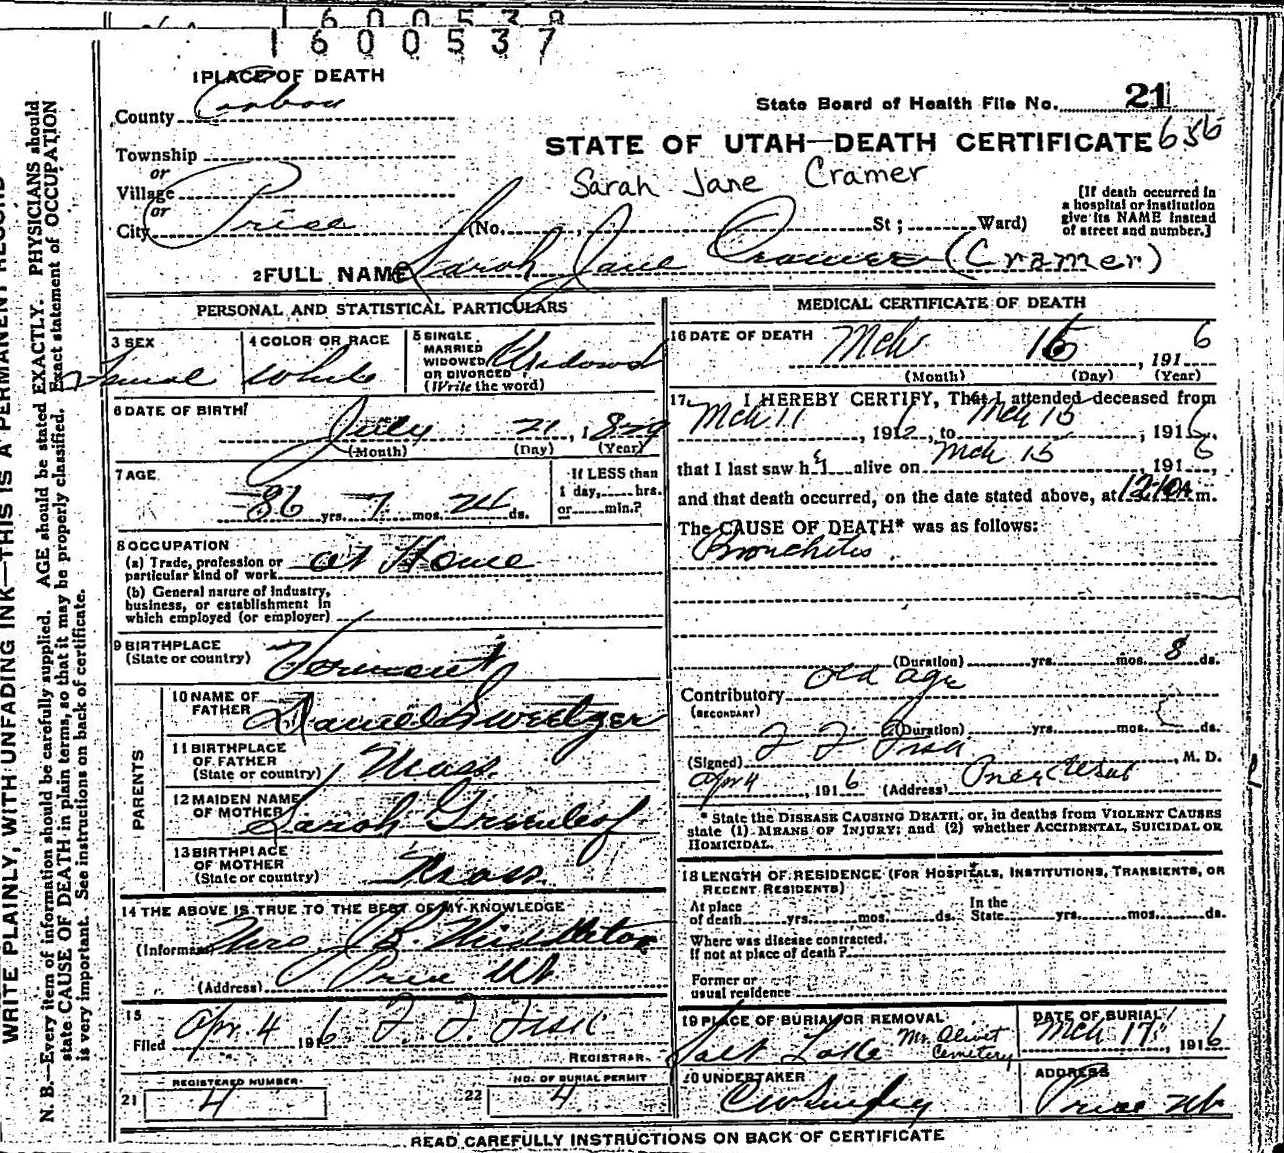 1600538
1600537
1 PLACE OF DEATH
County Carbon
State Board of Health File No. 21
STATE OF UTAH—DEATH CERTIFICATE 656
Township
or
Village
or
City Price
Sarah Jane Cramer
(No. , St ; Ward)
[If death occurred in
a hospital or institution
give its NAME instead
of street and number.]
2 FULL NAME Sarah Jane Cramer (Cramer)
PERSONAL AND STATISTICAL PARTICULARS
3 SEX
Femal
4 COLOR OR RACE
White
5 SINGLE
MARRIED
WIDOWED
OR DIVORCED
(Write the word)
Widowd
6 DATE OF BIRTH
July 21, 1829
(Month) (Day) (Year)
7 AGE
86 yrs. 7 mos. 24 ds.
If LESS than
1 day, hrs.
or min.?
8 OCCUPATION
(a) Trade, profession or
particular kind of work at Home
(b) General nature of industry,
business, or establishment in
which employed (or employer)
9 BIRTHPLACE
(State or country) Vermont
PARENTS
10 NAME OF
FATHER Daniel Sweetzer
11 BIRTHPLACE
OF FATHER
(State or country) Mass.
12 MAIDEN NAME
OF MOTHER Sarah Greenleof
13 BIRTHPLACE
OF MOTHER
(State or country) Mass
14 THE ABOVE IS TRUE TO THE BEST OF MY KNOWLEDGE
(Informant) Mrs J. B. Middleton
(Address) Price Ut
15
Filed Apr. 4 1916 F. F. Fisk
REGISTRAR.
REGISTERED NUMBER
21 4
NO. OF BURIAL PERMIT
22 4
MEDICAL CERTIFICATE OF DEATH
16 DATE OF DEATH
Mch 16, 1916
(Month) (Day) (Year)
17. I HEREBY CERTIFY, That I attended deceased from
Mch 11, 1916, to Mch 15, 1916,
that I last saw her alive on Mch 15, 1916,
and that death occurred, on the date stated above, at 12:10 A m.
The CAUSE OF DEATH* was as follows:
Bronchitis.
(Duration) yrs. mos. 8 ds.
Contributory old age
(SECONDARY)
(Duration) yrs. mos. ds.
(Signed) F F Fisk, M. D.
Apr 4, 1916 (Address) Price Utah
* State the DISEASE CAUSING DEATH, or, in deaths from VIOLENT CAUSES
state (1) MEANS OF INJURY; and (2) whether ACCIDENTAL, SUICIDAL OR
HOMICIDAL.
18 LENGTH OF RESIDENCE (FOR HOSPITALS, INSTITUTIONS, TRANSIENTS, OR
RECENT RESIDENTS)
At place
of death yrs. mos. ds.
In the
State yrs. mos. ds.
Where was disease contracted,
if not at place of death?
Former or
usual residence
19 PLACE OF BURIAL OR REMOVAL
Salt Lake Mt. Olivet
Cemetery
DATE OF BURIAL
Mch 17, 1916
20 UNDERTAKER
ADDRESS
Price Ut
READ CAREFULLY INSTRUCTIONS ON BACK OF CERTIFICATE
WRITE PLAINLY, WITH UNFADING INK—THIS IS A PERMANENT RECORD
N. B.—Every item of information should be carefully supplied. AGE should be stated EXACTLY. PHYSICIANS should
state CAUSE OF DEATH in plain terms, so that it may be properly classified. Exact statement of OCCUPATION
is very important. See instructions on back of certificate.